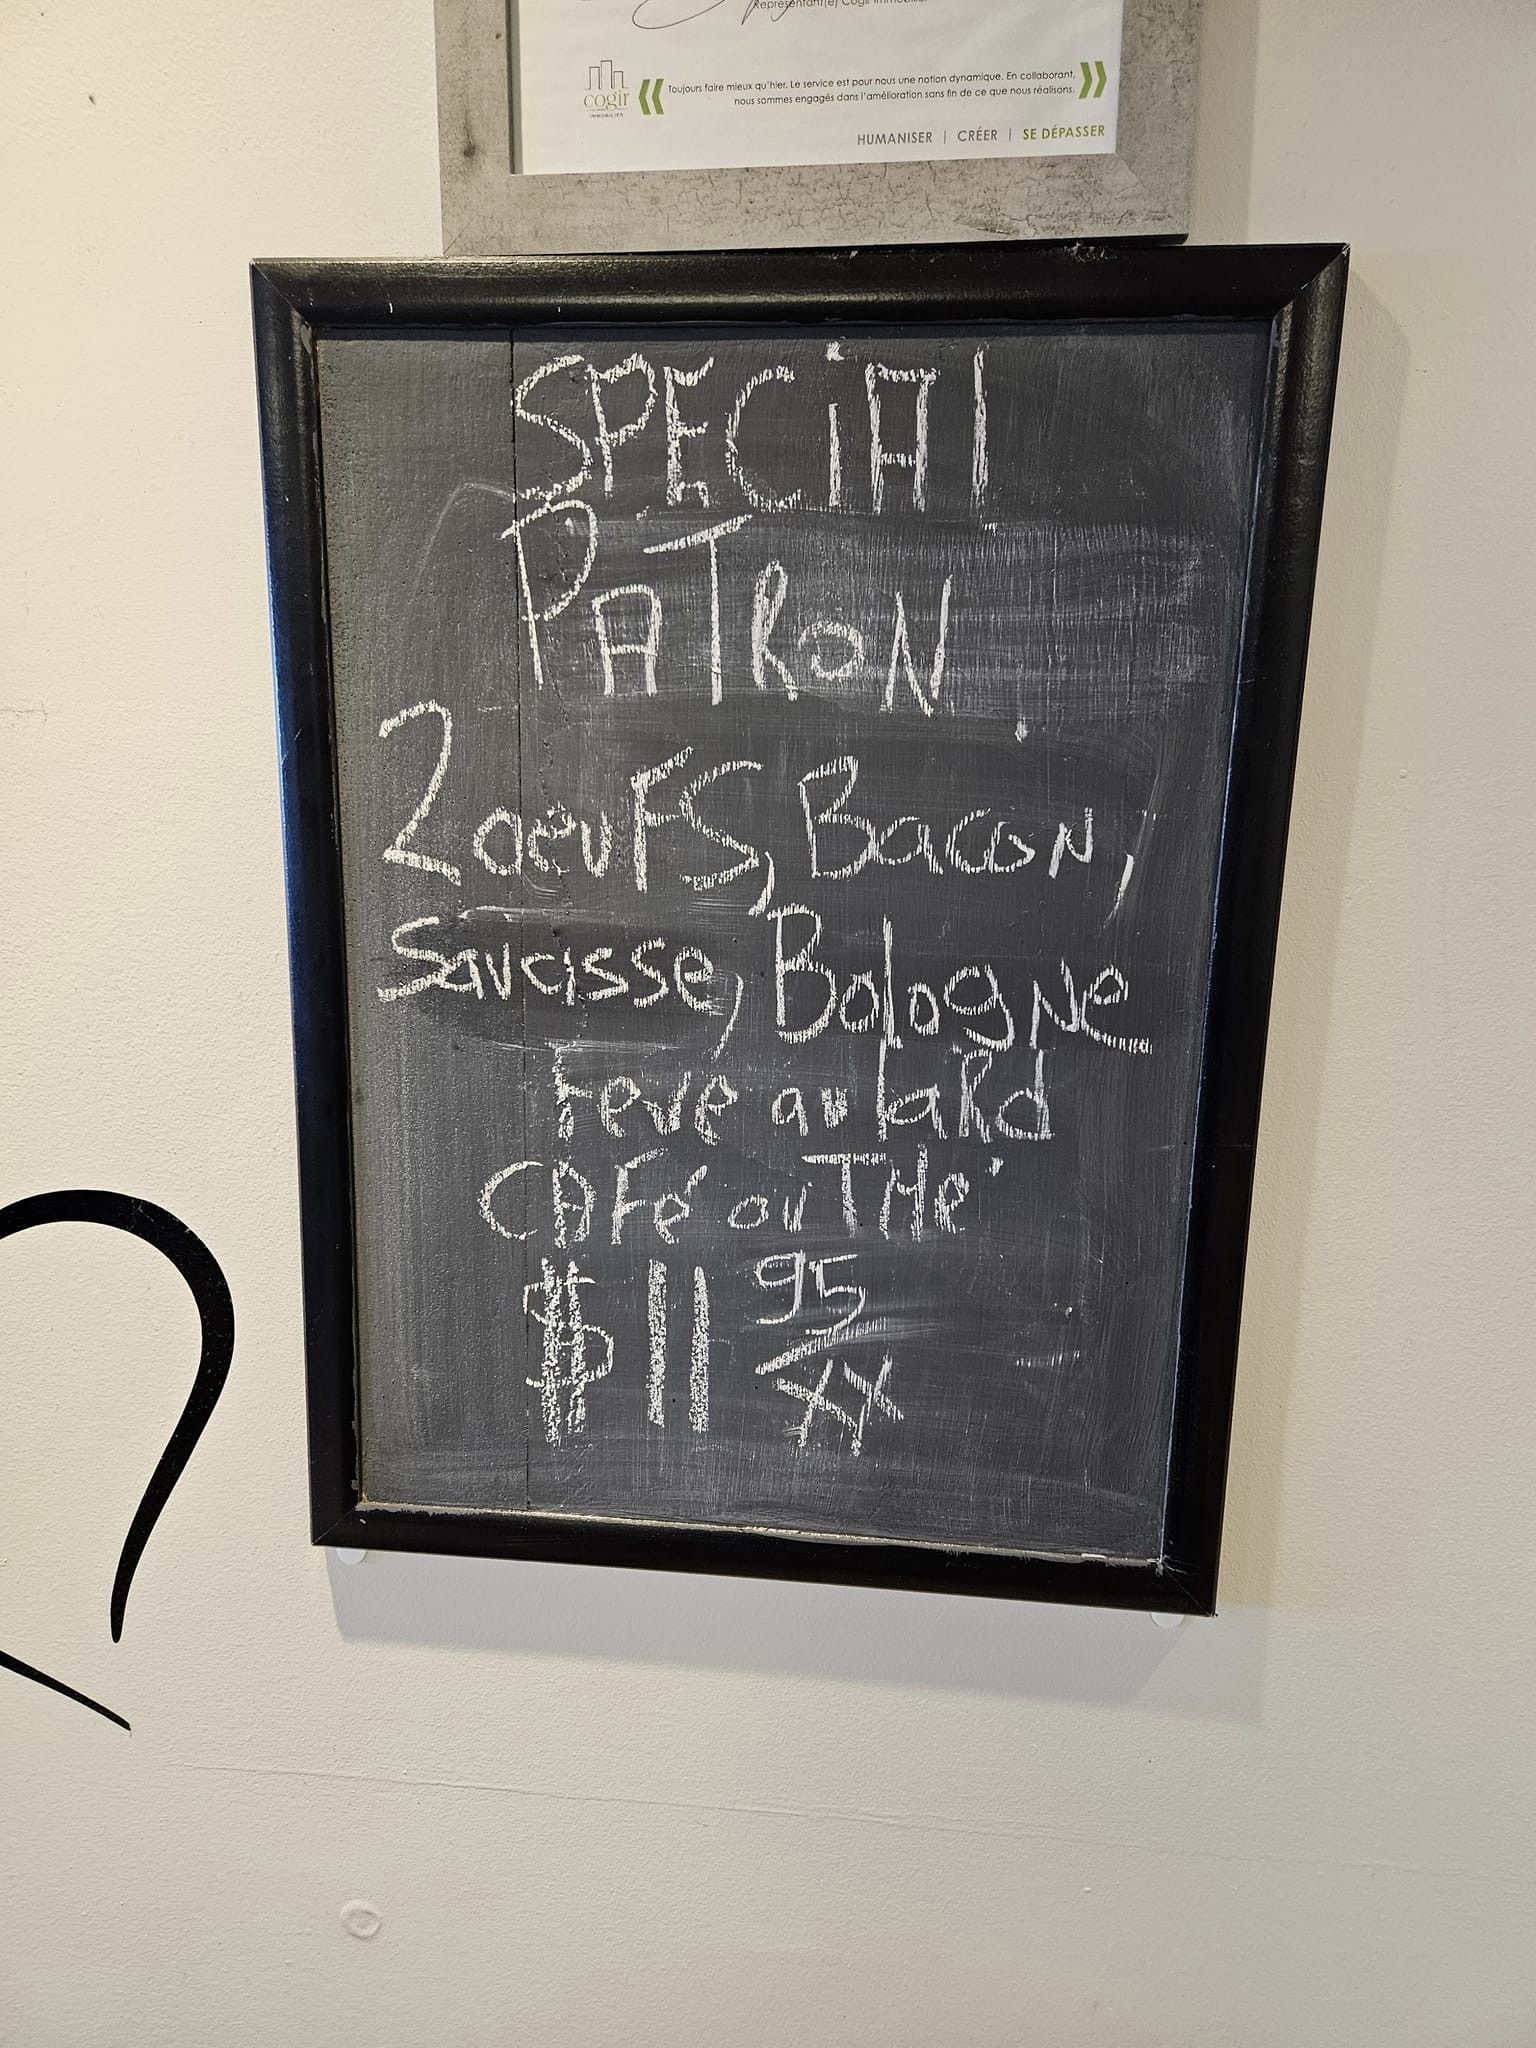 Représentant(e) Cogir Immobilier
cogir
IMMOBILIER
Toujours faire mieux qu'hier. Le service est pour nous une notion dynamique. En collaborant,
nous sommes engagés dans l'amélioration sans fin de ce que nous réalisons.
HUMANISER | CRÉER | SE DÉPASSER
SPECiAl
PATRON
2 oeuFS, Bacon,
Saucisse, Bologne
Feve au laRd
CAFé ou THe'
$ 11 95